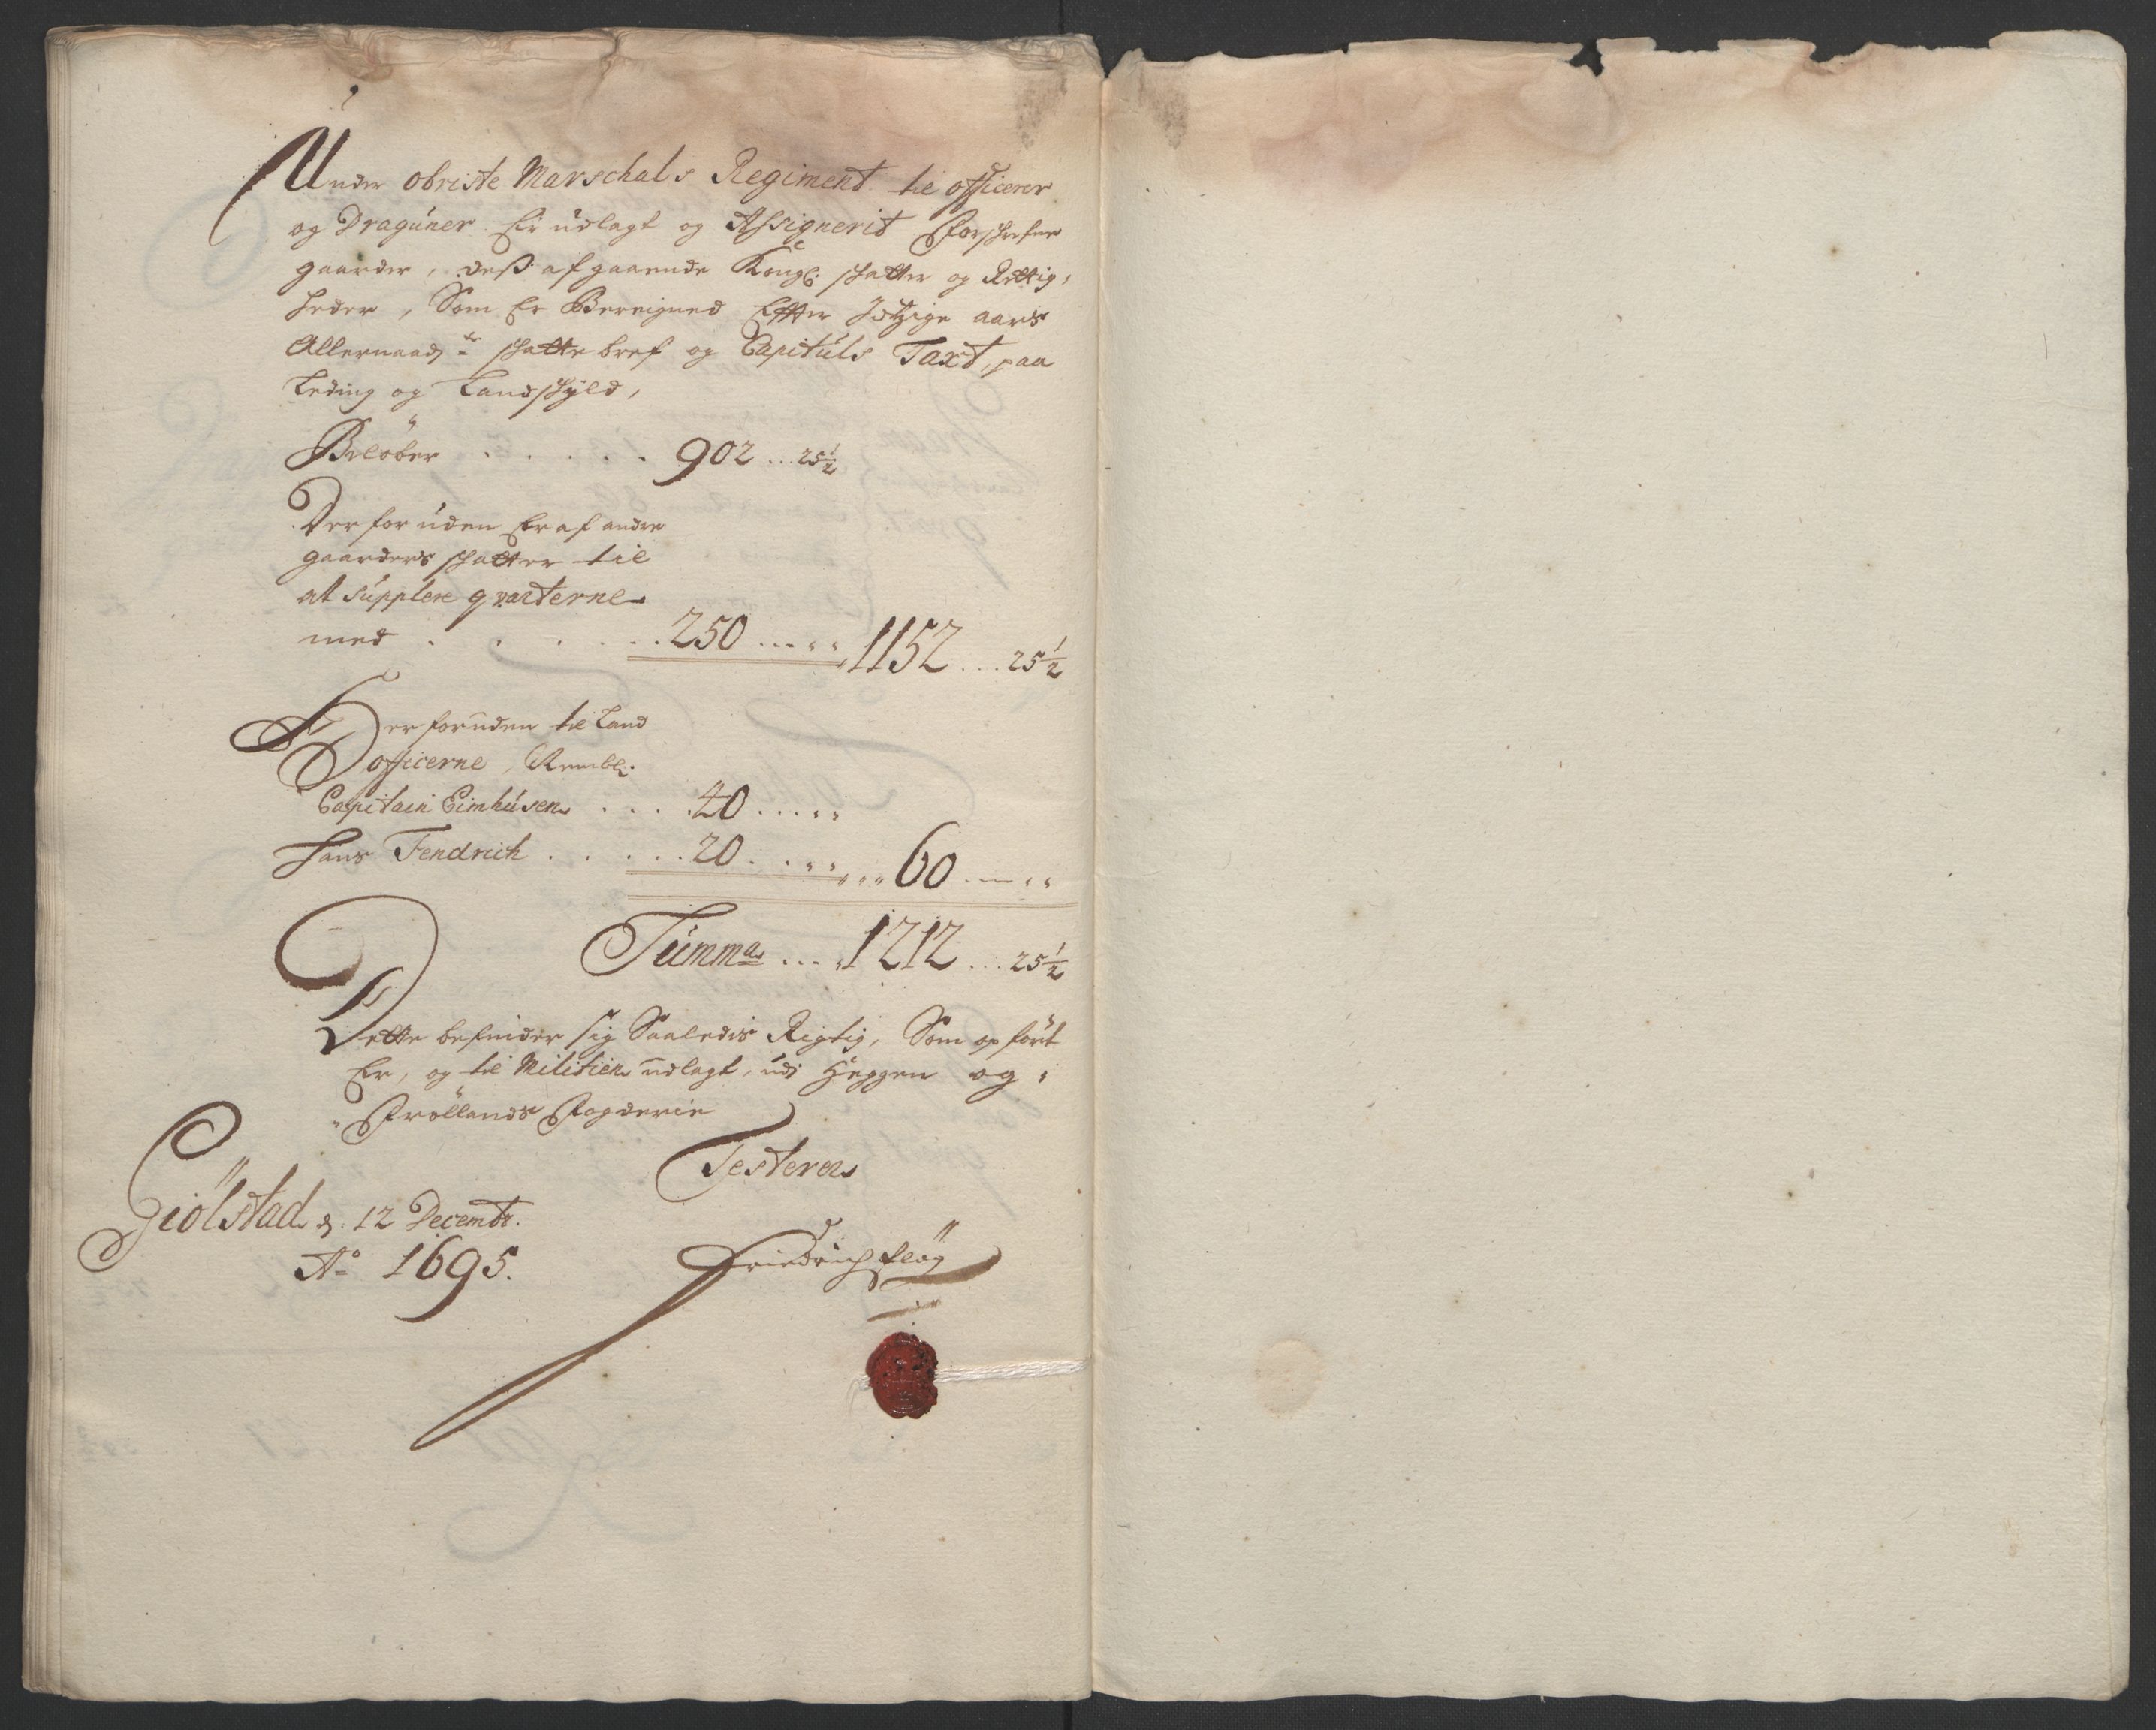 Under obriste Marschals Regiment til officerer
og Dragúner Er údlagt og Assignerit Forschrefne
gaarder, deß afgaaende Kongl: schatter og Rettig,
heder, Som Er Bereigned Effter Jdtzige aars
Allernaads:te schatte bref og Capituls Taxt, paa
Leding og Landschyld,
Beløber . . . . . 902 ... 25½
Der for uden Er af andre
gaarders schatter til
at súpplere qvarterne
med . . . . . . 250 ..... 1152 ... 25½
Der foruden til Land
officerne, Nembl:
Capitain Eimhúsen . . . . 40 .....
Hans Fendrich . . . . . 20 ..... 60 .....
Summa .... 1212 ... 25½
Dette befinder sig Saaledis Rigtig, Som opfört
Er, og til Militien udlagt, udi Heggen og
Fröllands Fogderie
Testerer
Giölstad d. 12 Decembr.
A:o 1695.
Friedrich flög